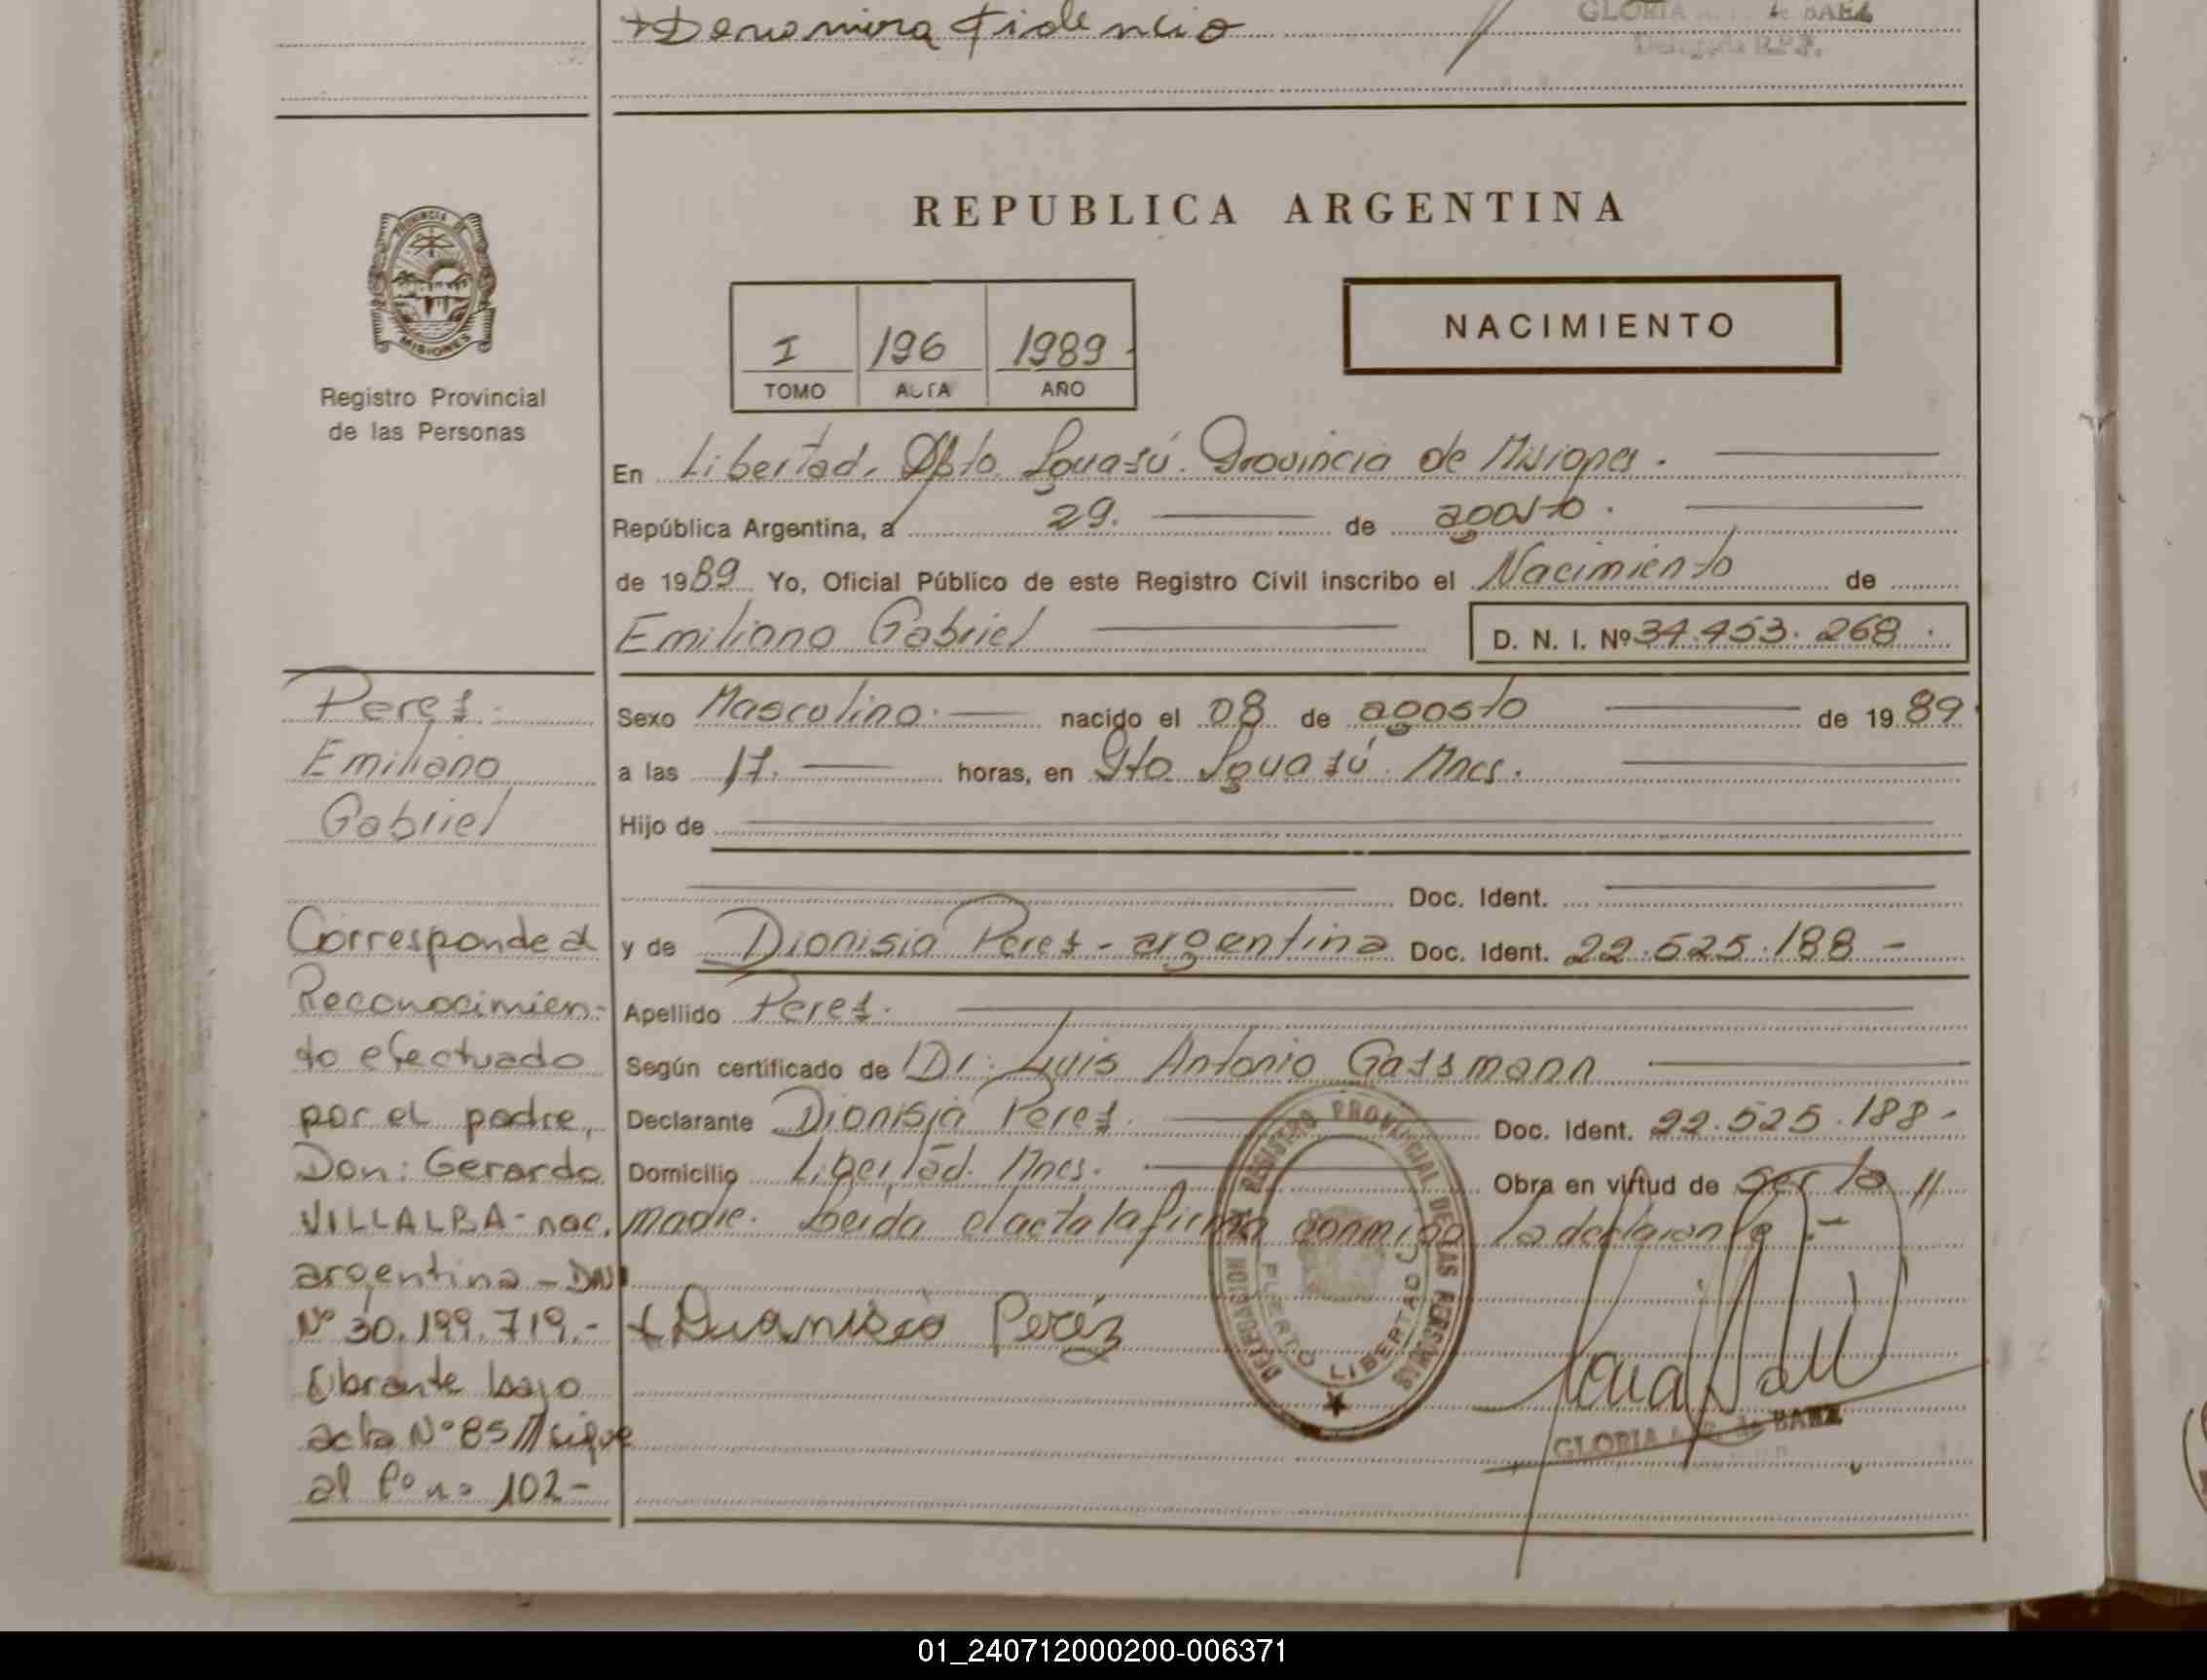 +Denomira Fidencio
GLORIA de BAEZ
REPUBLICA ARGENTINA
PROVINCIA DE
MISIONES
Registro Provincial
de las Personas
I 196 1989
TOMO ACTA AÑO
NACIMIENTO
En Libertad. Dpto Iguazú. Provincia de Misiones.
República Argentina, a 29. de agosto.
de 1989 Yo, Oficial Público de este Registro Civil inscribo el Nacimiento de
Emiliano Gabriel D. N. I. Nº 34.453.268.
Perez.
Emiliano
Gabriel
Sexo Masculino. nacido el 08 de agosto de 1989
a las 17. horas, en Pto. Iguazú. Mnes.
Hijo de
Doc. Ident.
y de Dionisia Perez - argentina Doc. Ident. 22.525.188 -
Apellido Perez.
Según certificado de Dr: Luis Antonio Gassmann
Declarante Dionisia Perez. Doc. Ident. 22.525.188-
Domicilio Libertad. Mnes. Obra en virtud de ser la //
madre. Leida el acta la firma conmigo la declarante.-
+Duanisio Peréz
Corresponde a
Reconocimien-
to efectuado
por el padre,
Don: Gerardo
VILLALBA-nac.
argentina - DNI
Nº 30.199.719.-
Obrante bajo
acta Nº 85//sigue
al fº nº 102-
REGISTRO PROVINCIAL DE LAS PERSONAS
DELEGACION
PUERTO LIBERTAD
GLORIA de BAEZ
01_240712000200-006371